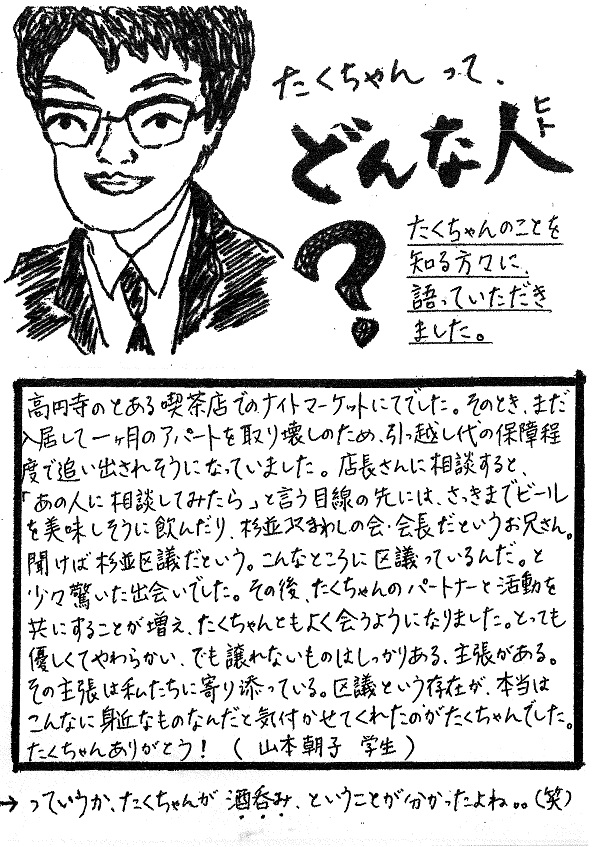 たくちゃんって、
どんな人
ヒト
?
たくちゃんのことを
知る方々に、
語っていただき
ました。
高円寺のとある喫茶店でのナイトマーケットにてでした。そのとき、まだ
入居して一ヶ月のアパートを取り壊しのため、引っ越し代の保障程
度で追い出されそうになっていました。店長さんに相談すると、
「あの人に相談してみたら」と言う目線の先には、さっきまでビール
を美味しそうに飲んだり、杉並区まわしの会・会長だというお兄さん。
聞けば杉並区議だという。こんなところに区議っているんだ。と
少々驚いた出会いでした。その後、たくちゃんのパートナーと活動を
共にすることが増え、たくちゃんともよく会うようになりました。とっても
優しくてやわらかい、でも譲れないものはしっかりある、主張がある。
その主張は私たちに寄り添っている。区議という存在が、本当は
こんなに身近なものなんだと気付かせてくれたのがたくちゃんでした。
たくちゃんありがとう! (山本朝子 学生)
→っていうか、たくちゃんが酒呑み、ということが分かったよね。。(笑)